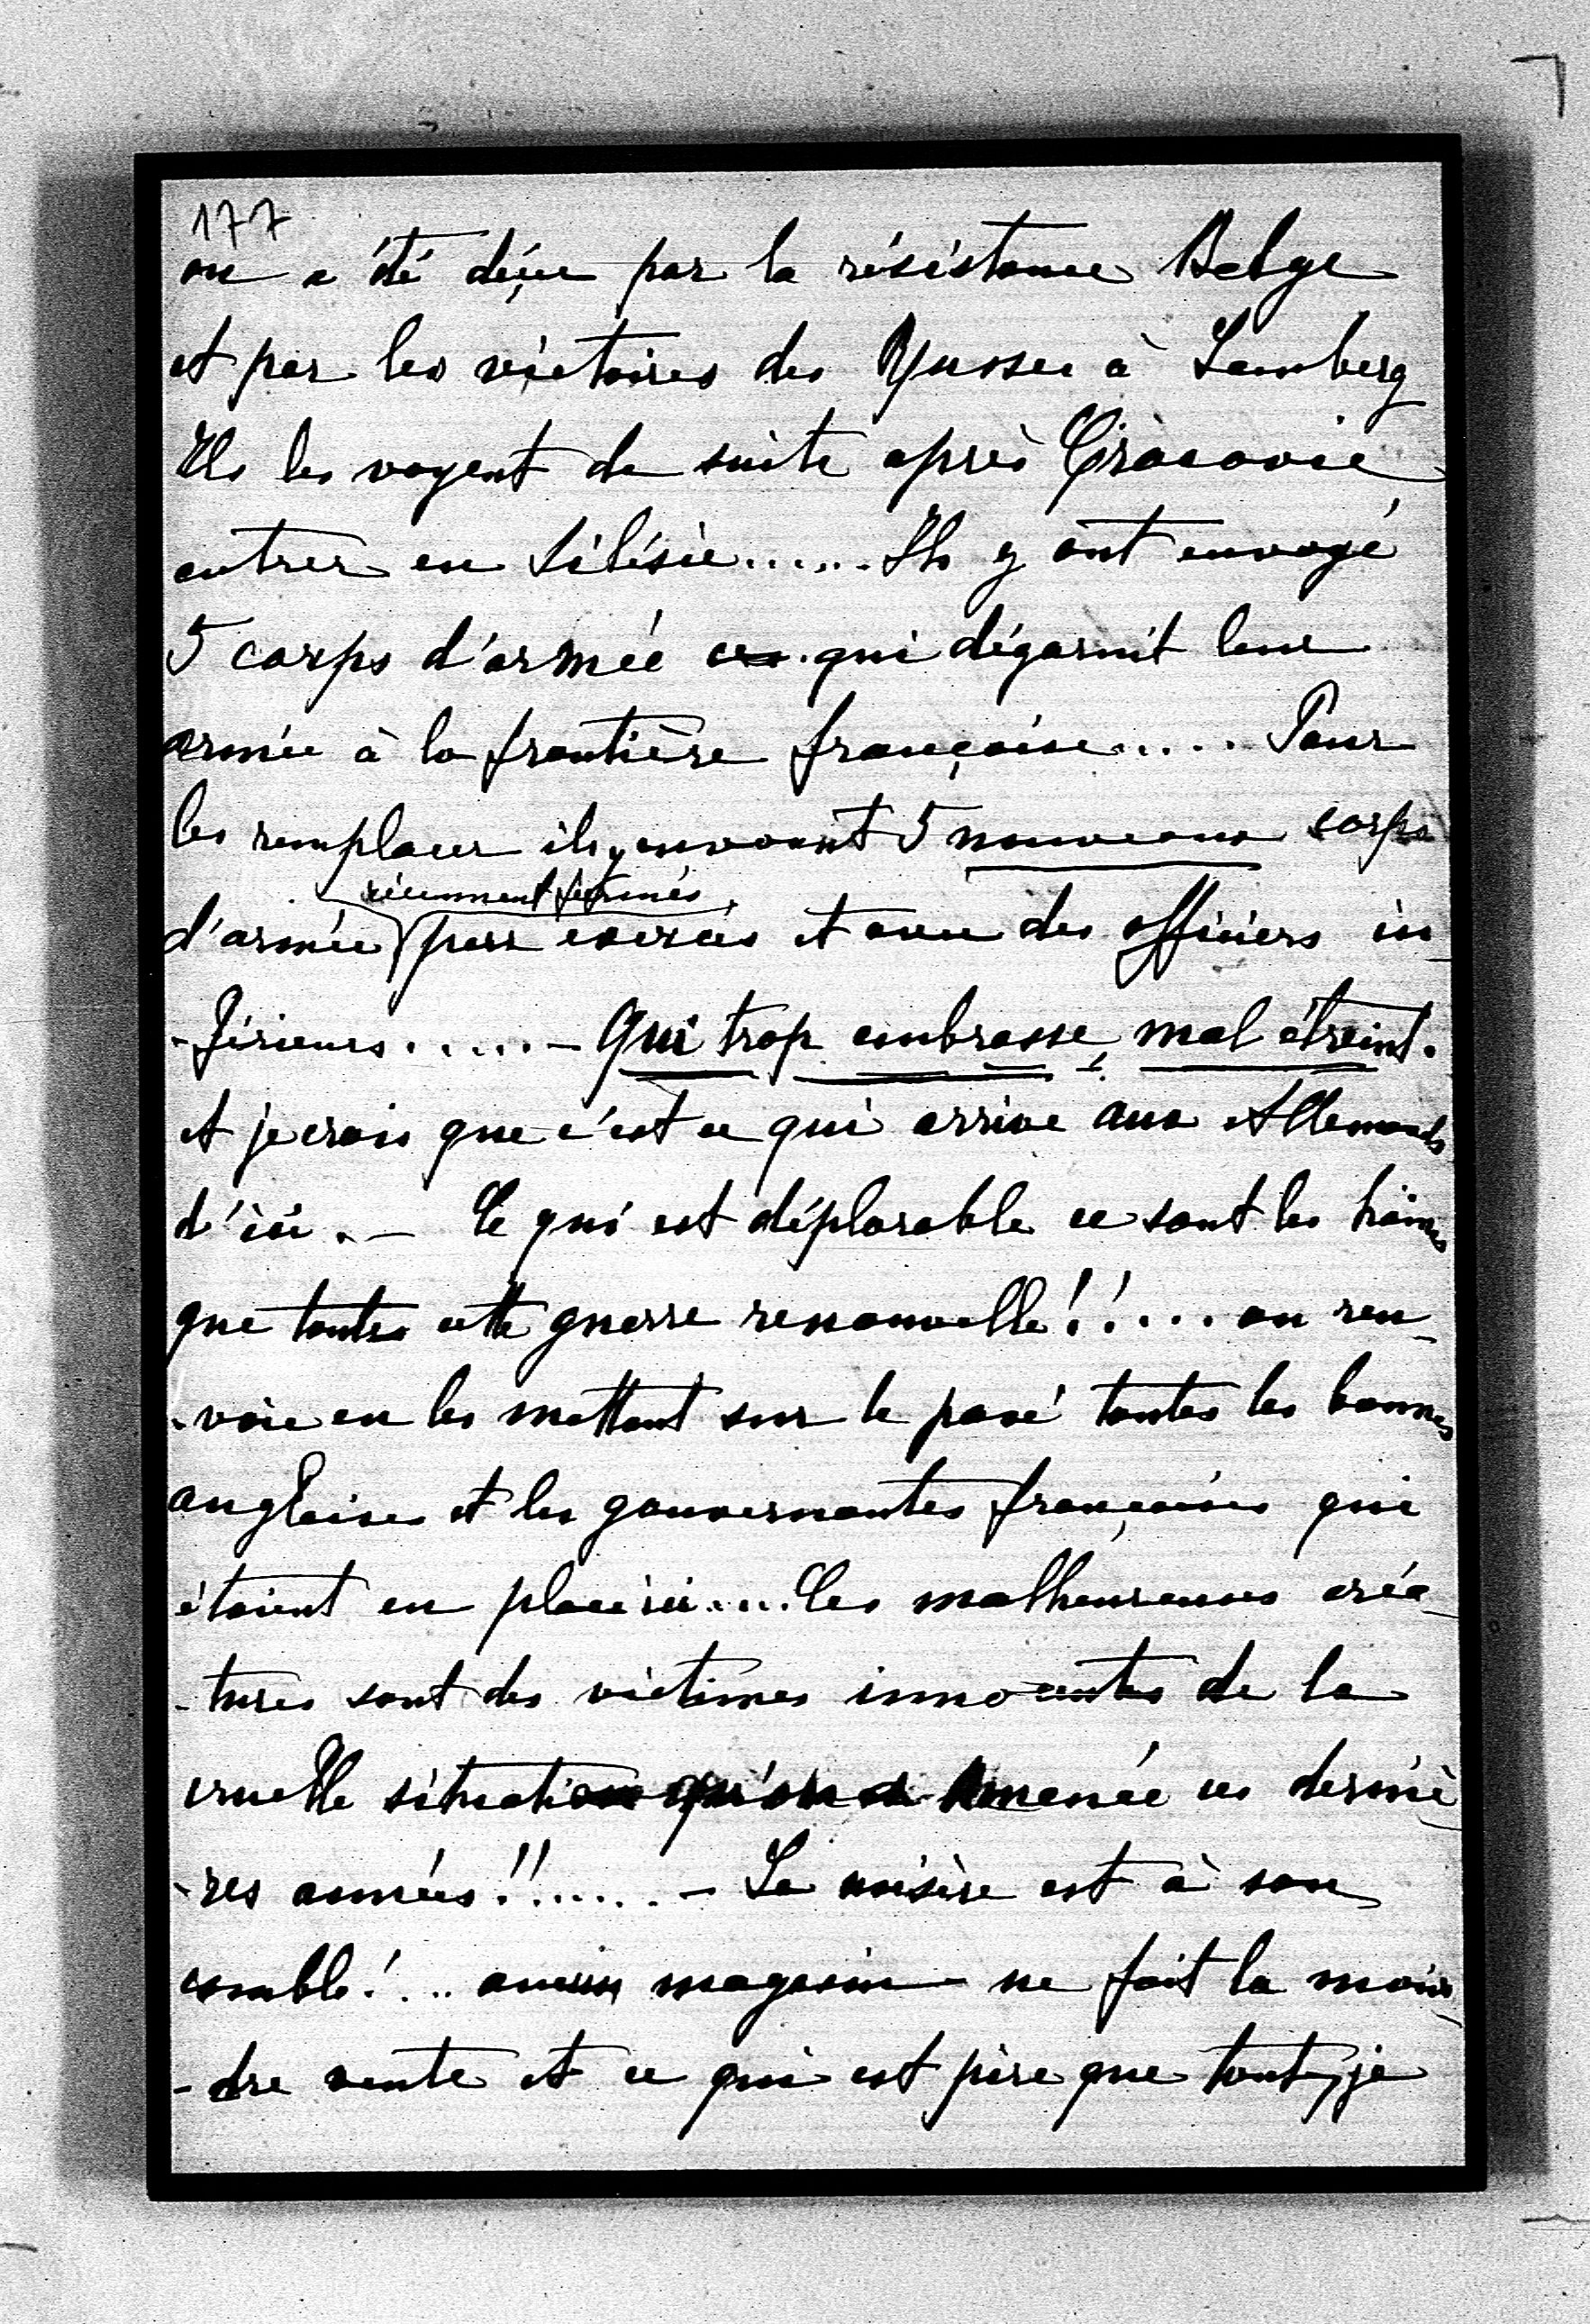 177
on a été déçu par la résistance Belge
et par les victoires des Russes à Lemberg
Ils les voyent de suite après Cracovie
entrer en Silésie...... Ils y ont envoyé
5 corps d'armée ce qui dégarnit leur
armée à la frontière française..... Pour
les remplacer ils y envoient 5 nouveaux corps
récemment formés
d'armée peu exercés et avec des officiers in
-férieurs...... - Qui trop embrasse, mal étreint.
et je crois que c'est ce qui arrive aux Allemands
d'ici. - Ce qui est déplorable ce sont les haines
que toutes cette guerre renouvelle!!.... on ren
-voie en les mettant sur le pavé toutes les bonnes
anglaises et les gouvernantes françaises qui
étaient en place ici.... Ces malheureuses créa
-tures sont des victimes innocentes de la
cruelle situation qu'on a amenée ces derniè
-res années!!...... - La misère est à son
comble!... aucun magasin ne fait la moin
-dre vente et ce qui est pire que tout, je